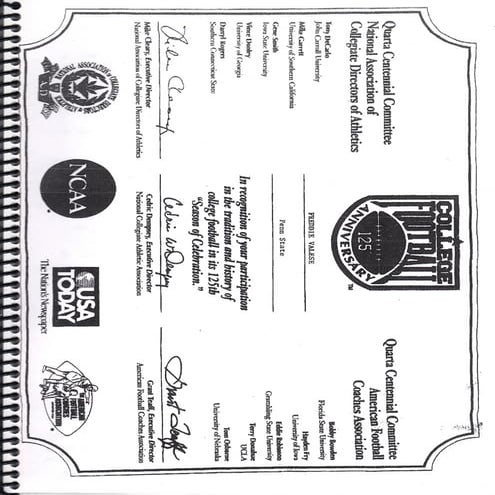 Quarta Centennial Committee
National Association of
Collegiate Directors of Athletics
Tony DeCarlo
John Carroll University
Mike Garrett
University of Southern California
Gene Smith
Iowa State University
Vince Dooley
University of Georgia
Darryl Rogers
Southern Connecticut State
COLLEGE
FOOTBALL
125
ANNIVERSARY
TM
Quarta Centennial Committee
American Football
Coaches Association
Bobby Bowden
Florida State University
Hayden Fry
University of Iowa
Eddie Robinson
Grambling State University
Terry Donahue
UCLA
Tom Osborne
University of Nebraska
FREDDIE VALESE
Penn State
In recognition of your participation
in the tradition and history of
college football in its 125th
"Season of Celebration."
Mike Cleary, Executive Director
National Association of Collegiate Directors of Athletics
Cedric Dempsey, Executive Director
National Collegiate Athletic Association
Grant Teaff, Executive Director
American Football Coaches Association
NCAA
USA
TODAY
The Nation's Newspaper